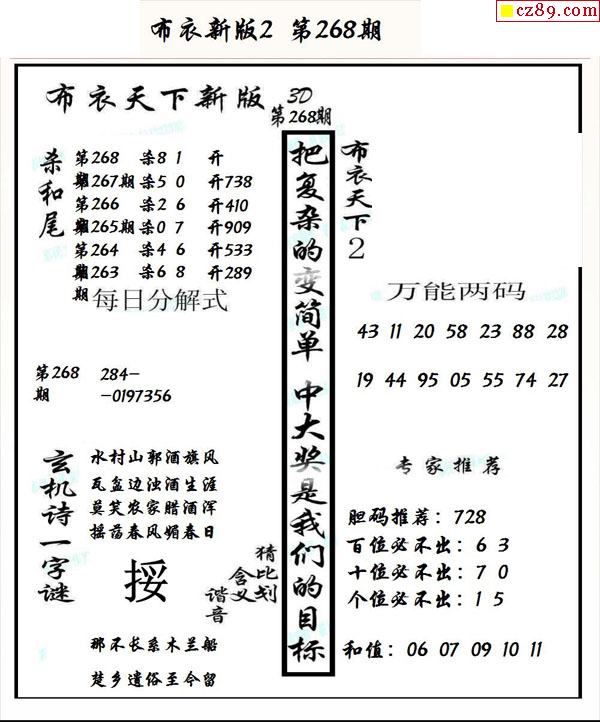 cz89.com
布衣新版2 第268期
布衣天下新版 3D
第268期
杀和尾
第268 杀8 1 开
第267期杀5 0 开738
第266 杀2 6 开410
第265期杀0 7 开909
第264 杀4 6 开533
第263 杀6 8 开289
期
每日分解式
第268期
284-
-0197356
玄机诗一字谜
水村山郭酒旗风
瓦盆边浊酒生涯
莫笑农家腊酒浑
摇荡春风媚春日
挼
猜比划
含义
谐音
那不长系木兰船
楚乡遗俗至今留
把复杂的变简单 中大奖是我们的目标
布衣天下2
万能两码
43 11 20 58 23 88 28
19 44 95 05 55 74 27
专家推荐
胆码推荐：728
百位必不出：6 3
十位必不出：7 0
个位必不出：1 5
和值：06 07 09 10 11